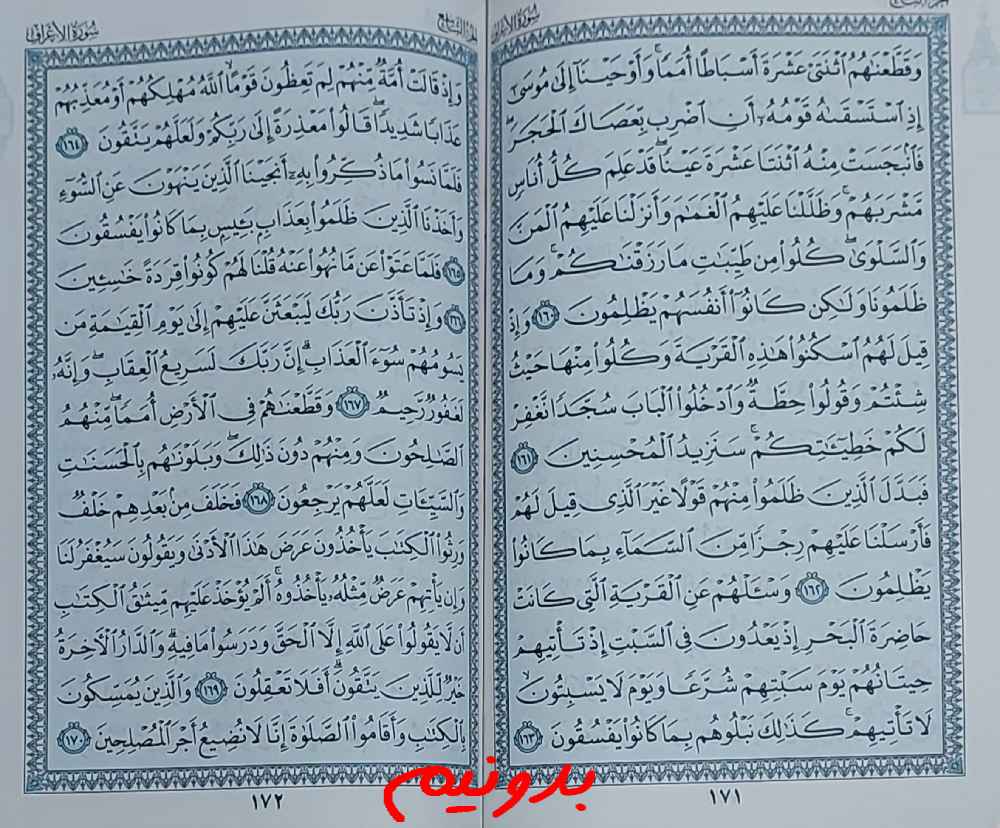 سورة الأعراف
وَقَطَّعْنَٰهُمُ ٱثْنَتَىْ عَشْرَةَ أَسْبَاطًا أُمَمًا ۚ وَأَوْحَيْنَآ إِلَىٰ مُوسَىٰٓ
إِذِ ٱسْتَسْقَىٰهُ قَوْمُهُۥٓ أَنِ ٱضْرِب بِّعَصَاكَ ٱلْحَجَرَ ۖ
فَٱنۢبَجَسَتْ مِنْهُ ٱثْنَتَا عَشْرَةَ عَيْنًا ۖ قَدْ عَلِمَ كُلُّ أُنَاسٍ
مَّشْرَبَهُمْ ۚ وَظَلَّلْنَا عَلَيْهِمُ ٱلْغَمَٰمَ وَأَنزَلْنَا عَلَيْهِمُ ٱلْمَنَّ
وَٱلسَّلْوَىٰ ۖ كُلُوا۟ مِن طَيِّبَٰتِ مَا رَزَقْنَٰكُمْ ۚ وَمَا
ظَلَمُونَا وَلَٰكِن كَانُوٓا۟ أَنفُسَهُمْ يَظْلِمُونَ ١٦٠ وَإِذْ
قِيلَ لَهُمُ ٱسْكُنُوا۟ هَٰذِهِ ٱلْقَرْيَةَ وَكُلُوا۟ مِنْهَا حَيْثُ
شِئْتُمْ وَقُولُوا۟ حِطَّةٌ وَٱدْخُلُوا۟ ٱلْبَابَ سُجَّدًا نَّغْفِرْ
لَكُمْ خَطِيٓـَٰٔتِكُمْ ۚ سَنَزِيدُ ٱلْمُحْسِنِينَ ١٦١
فَبَدَّلَ ٱلَّذِينَ ظَلَمُوا۟ مِنْهُمْ قَوْلًا غَيْرَ ٱلَّذِى قِيلَ لَهُمْ
فَأَرْسَلْنَا عَلَيْهِمْ رِجْزًا مِّنَ ٱلسَّمَآءِ بِمَا كَانُوا۟
يَظْلِمُونَ ١٦٢ وَسْـَٔلْهُمْ عَنِ ٱلْقَرْيَةِ ٱلَّتِى كَانَتْ
حَاضِرَةَ ٱلْبَحْرِ إِذْ يَعْدُونَ فِى ٱلسَّبْتِ إِذْ تَأْتِيهِمْ
حِيتَانُهُمْ يَوْمَ سَبْتِهِمْ شُرَّعًا وَيَوْمَ لَا يَسْبِتُونَ ۙ
لَا تَأْتِيهِمْ ۚ كَذَٰلِكَ نَبْلُوهُم بِمَا كَانُوا۟ يَفْسُقُونَ ١٦٣
١٧١
الجزء التاسع
سورة الأعراف
وَإِذْ قَالَتْ أُمَّةٌ مِّنْهُمْ لِمَ تَعِظُونَ قَوْمًا ۙ ٱللَّهُ مُهْلِكُهُمْ أَوْ مُعَذِّبُهُمْ
عَذَابًا شَدِيدًا ۖ قَالُوا۟ مَعْذِرَةً إِلَىٰ رَبِّكُمْ وَلَعَلَّهُمْ يَتَّقُونَ ١٦٤
فَلَمَّا نَسُوا۟ مَا ذُكِّرُوا۟ بِهِۦٓ أَنجَيْنَا ٱلَّذِينَ يَنْهَوْنَ عَنِ ٱلسُّوٓءِ
وَأَخَذْنَا ٱلَّذِينَ ظَلَمُوا۟ بِعَذَابٍۭ بَـِٔيسٍۭ بِمَا كَانُوا۟ يَفْسُقُونَ
١٦٥ فَلَمَّا عَتَوْا۟ عَن مَّا نُهُوا۟ عَنْهُ قُلْنَا لَهُمْ كُونُوا۟ قِرَدَةً خَٰسِـِٔينَ
١٦٦ وَإِذْ تَأَذَّنَ رَبُّكَ لَيَبْعَثَنَّ عَلَيْهِمْ إِلَىٰ يَوْمِ ٱلْقِيَٰمَةِ مَن
يَسُومُهُمْ سُوٓءَ ٱلْعَذَابِ ۗ إِنَّ رَبَّكَ لَسَرِيعُ ٱلْعِقَابِ ۖ وَإِنَّهُۥ
لَغَفُورٌ رَّحِيمٌ ١٦٧ وَقَطَّعْنَٰهُمْ فِى ٱلْأَرْضِ أُمَمًا ۖ مِّنْهُمُ
ٱلصَّٰلِحُونَ وَمِنْهُمْ دُونَ ذَٰلِكَ ۖ وَبَلَوْنَٰهُم بِٱلْحَسَنَٰتِ
وَٱلسَّيِّـَٔاتِ لَعَلَّهُمْ يَرْجِعُونَ ١٦٨ فَخَلَفَ مِنۢ بَعْدِهِمْ خَلْفٌ
وَرِثُوا۟ ٱلْكِتَٰبَ يَأْخُذُونَ عَرَضَ هَٰذَا ٱلْأَدْنَىٰ وَيَقُولُونَ سَيُغْفَرُ لَنَا
وَإِن يَأْتِهِمْ عَرَضٌ مِّثْلُهُۥ يَأْخُذُوهُ ۚ أَلَمْ يُؤْخَذْ عَلَيْهِم مِّيثَٰقُ ٱلْكِتَٰبِ
أَن لَّا يَقُولُوا۟ عَلَى ٱللَّهِ إِلَّا ٱلْحَقَّ وَدَرَسُوا۟ مَا فِيهِ ۗ وَٱلدَّارُ ٱلْءَاخِرَةُ
خَيْرٌ لِّلَّذِينَ يَتَّقُونَ ۗ أَفَلَا تَعْقِلُونَ ١٦٩ وَٱلَّذِينَ يُمَسِّكُونَ
بِٱلْكِتَٰبِ وَأَقَامُوا۟ ٱلصَّلَوٰةَ إِنَّا لَا نُضِيعُ أَجْرَ ٱلْمُصْلِحِينَ ١٧٠
١٧٢
بدونیم